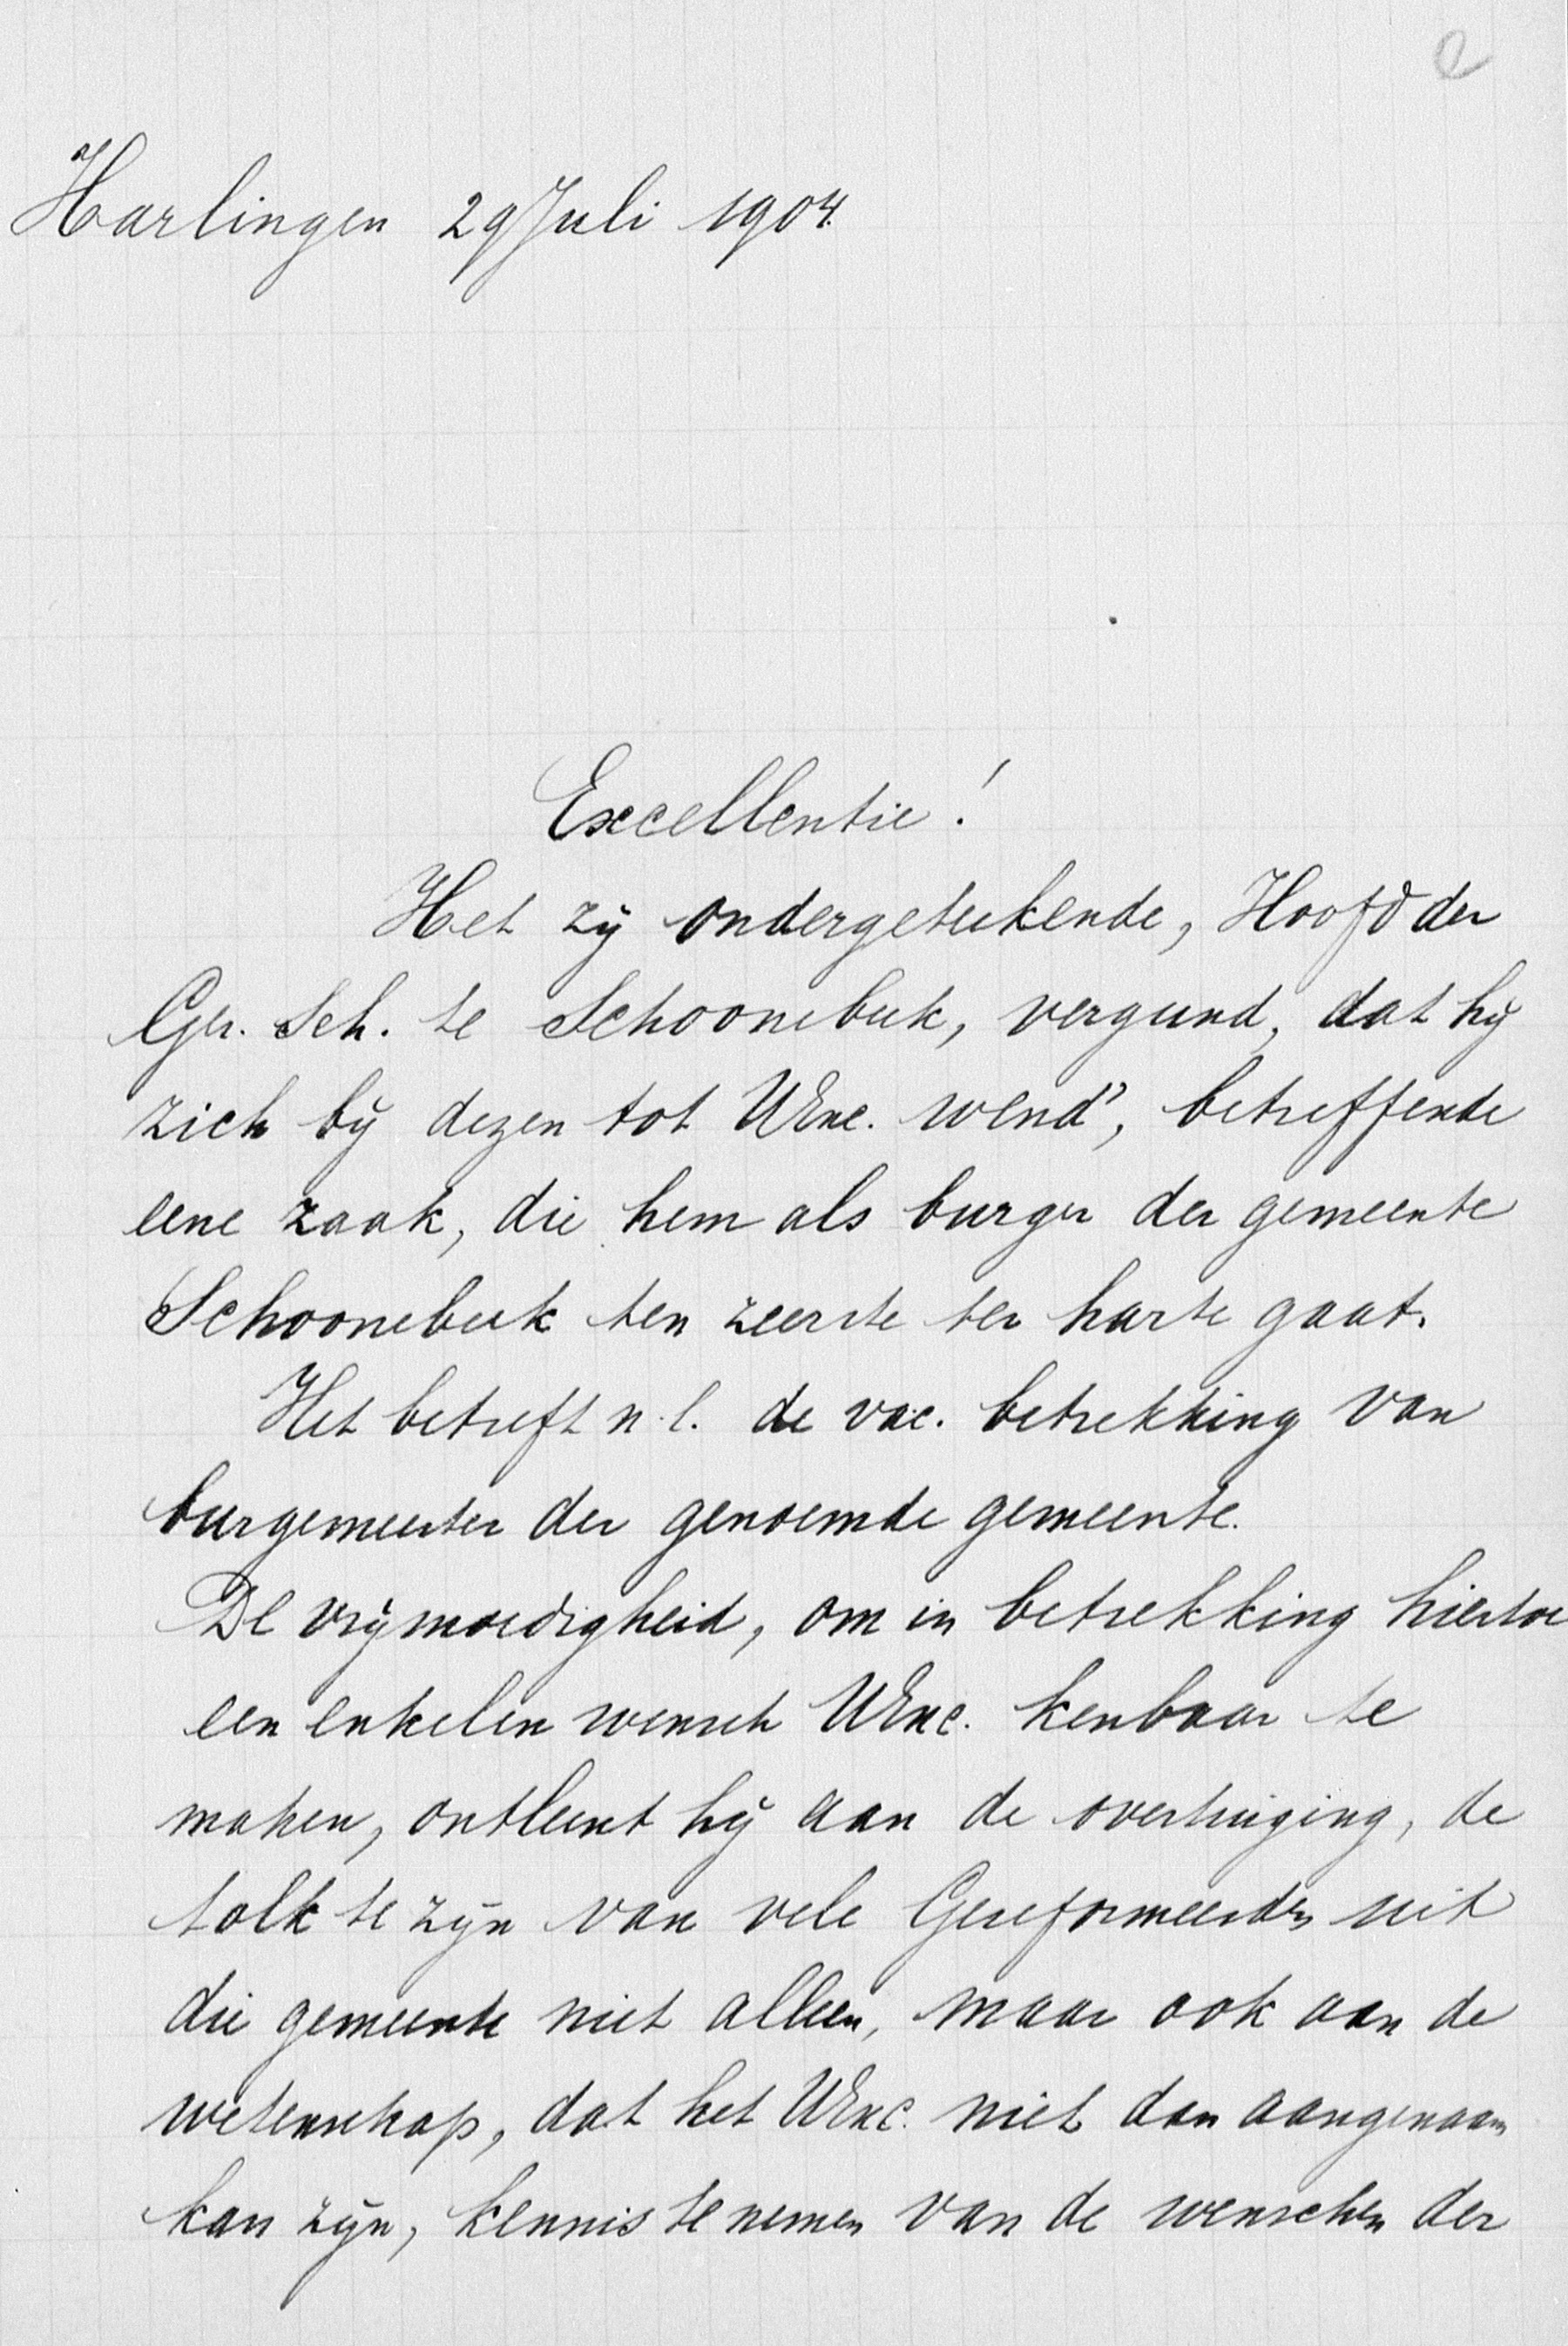 e
Harlingen 29 Juli 1904.
Excellentie!
Het zij ondergeteekende, Hoofd der
Ger. Sch. te Schoonebeek, vergund, dat hij
zich bij dezen tot UExc. wend', betreffende
eene zaak, die hem als burger der gemeente
Schoonebeek ten zeerste ter harte gaat.
Het betreft n.l. de vac. betrekking van
burgemeester der genoemde gemeente.
De vrijmoedigheid, om in betrekking hiertoe
een enkelen wensch UExc. kenbaar te
maken, ontleent hij aan de overtuiging, de
tolk te zijn van vele Gereformeerden uit
die gemeente niet alleen, maar ook aan de
wetenschap, dat het UExc. niet dan aangenaam
kan zijn, kennis te nemen van de wenschen der